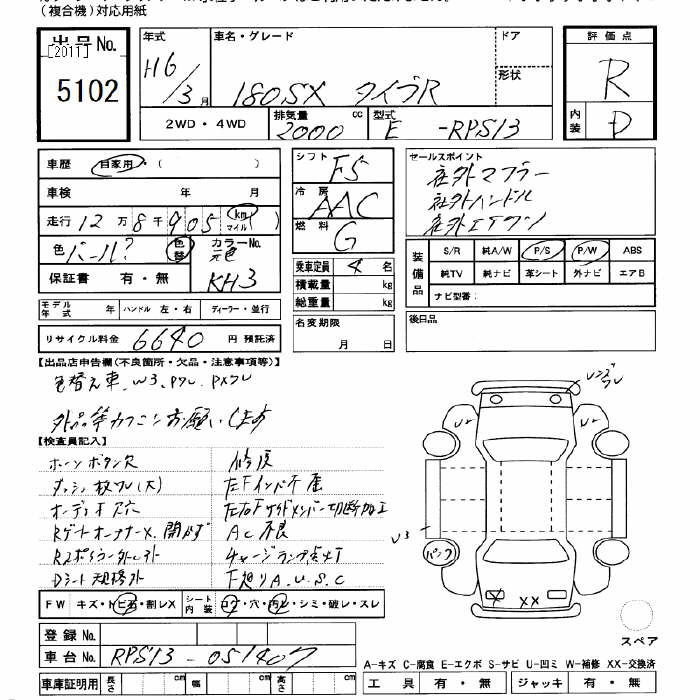 （複合機）対応用紙
出品No.
[2011]
5102
年式 H6/3月
車名・グレード 180SX タイプR
ドア
形状
2WD・4WD
排気量 2000 cc
型式 E -RPS13
評価点 R
内装 D
車歴 自家用・( )
車検 年 月
走行 12万8千905 (km マイル)
色 パール? 色替
カラーNo. 元色 KH3
保証書 有・無
シフト F5
冷房 AAC
燃料 G
乗車定員 4名
積載量 kg
総重量 kg
名変期限
月 日
セールスポイント
社外マフラー
社外ハンドル
社外エアクリ
装備品
S/R 純A/W P/S P/W ABS
純TV 純ナビ 革シート 外ナビ エアB
ナビ型番:
後日品
モデル年式 年 ハンドル 左・右 ディーラー・並行
リサイクル料金 6640 円 預託済
【出品店申告欄（不良箇所・欠品・注意事項等）】
色替え車、W3、
外品等カクニンお願いします
【検査員記入】
ホーンボタン欠
ダッシュ板ワレ(大)
オーディオ穴
Rゲートオープナー×、開かず
Rスポイラー
Dシート規格外
修復
左Fインパネ歪
左右Fサイドメンバー切断加工
AC不良
チャージランプ点灯
F廻りA.U.S.C
FW キズ・トビ石・割レX
シート内装 コゲ・穴・汚レ・シミ・破レ・スレ
U2
U2
U3
パンク
X XX
スペア
登録No.
車台No. RPS13-051407
車庫証明用 長さ cm 幅 cm 高さ cm
A-キズ C-腐食 E-エクボ S-サビ U-凹ミ W-補修 XX-交換済
工具 有・無 ジャッキ 有・無